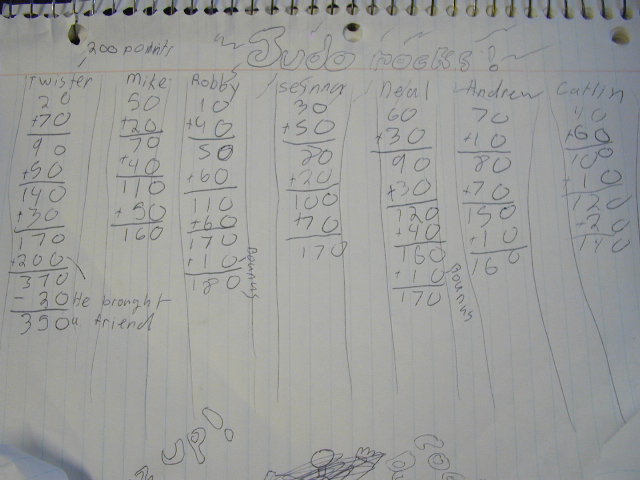 200 points
Twister
20
+70
90
+50
140
+30
170
+200
370
-20
350
He brought
a friend
Mike
50
+20
70
+40
110
+50
160
Robby
10
+40
50
+60
110
+60
170
+10
180
Bounus
30
+50
80
+20
100
+70
170
neal
60
+30
90
+30
120
+40
160
+10
170
Bounus
Andrew
70
+10
80
+70
150
+10
160
Catlin
40
+60
100
+10
120
+20
140